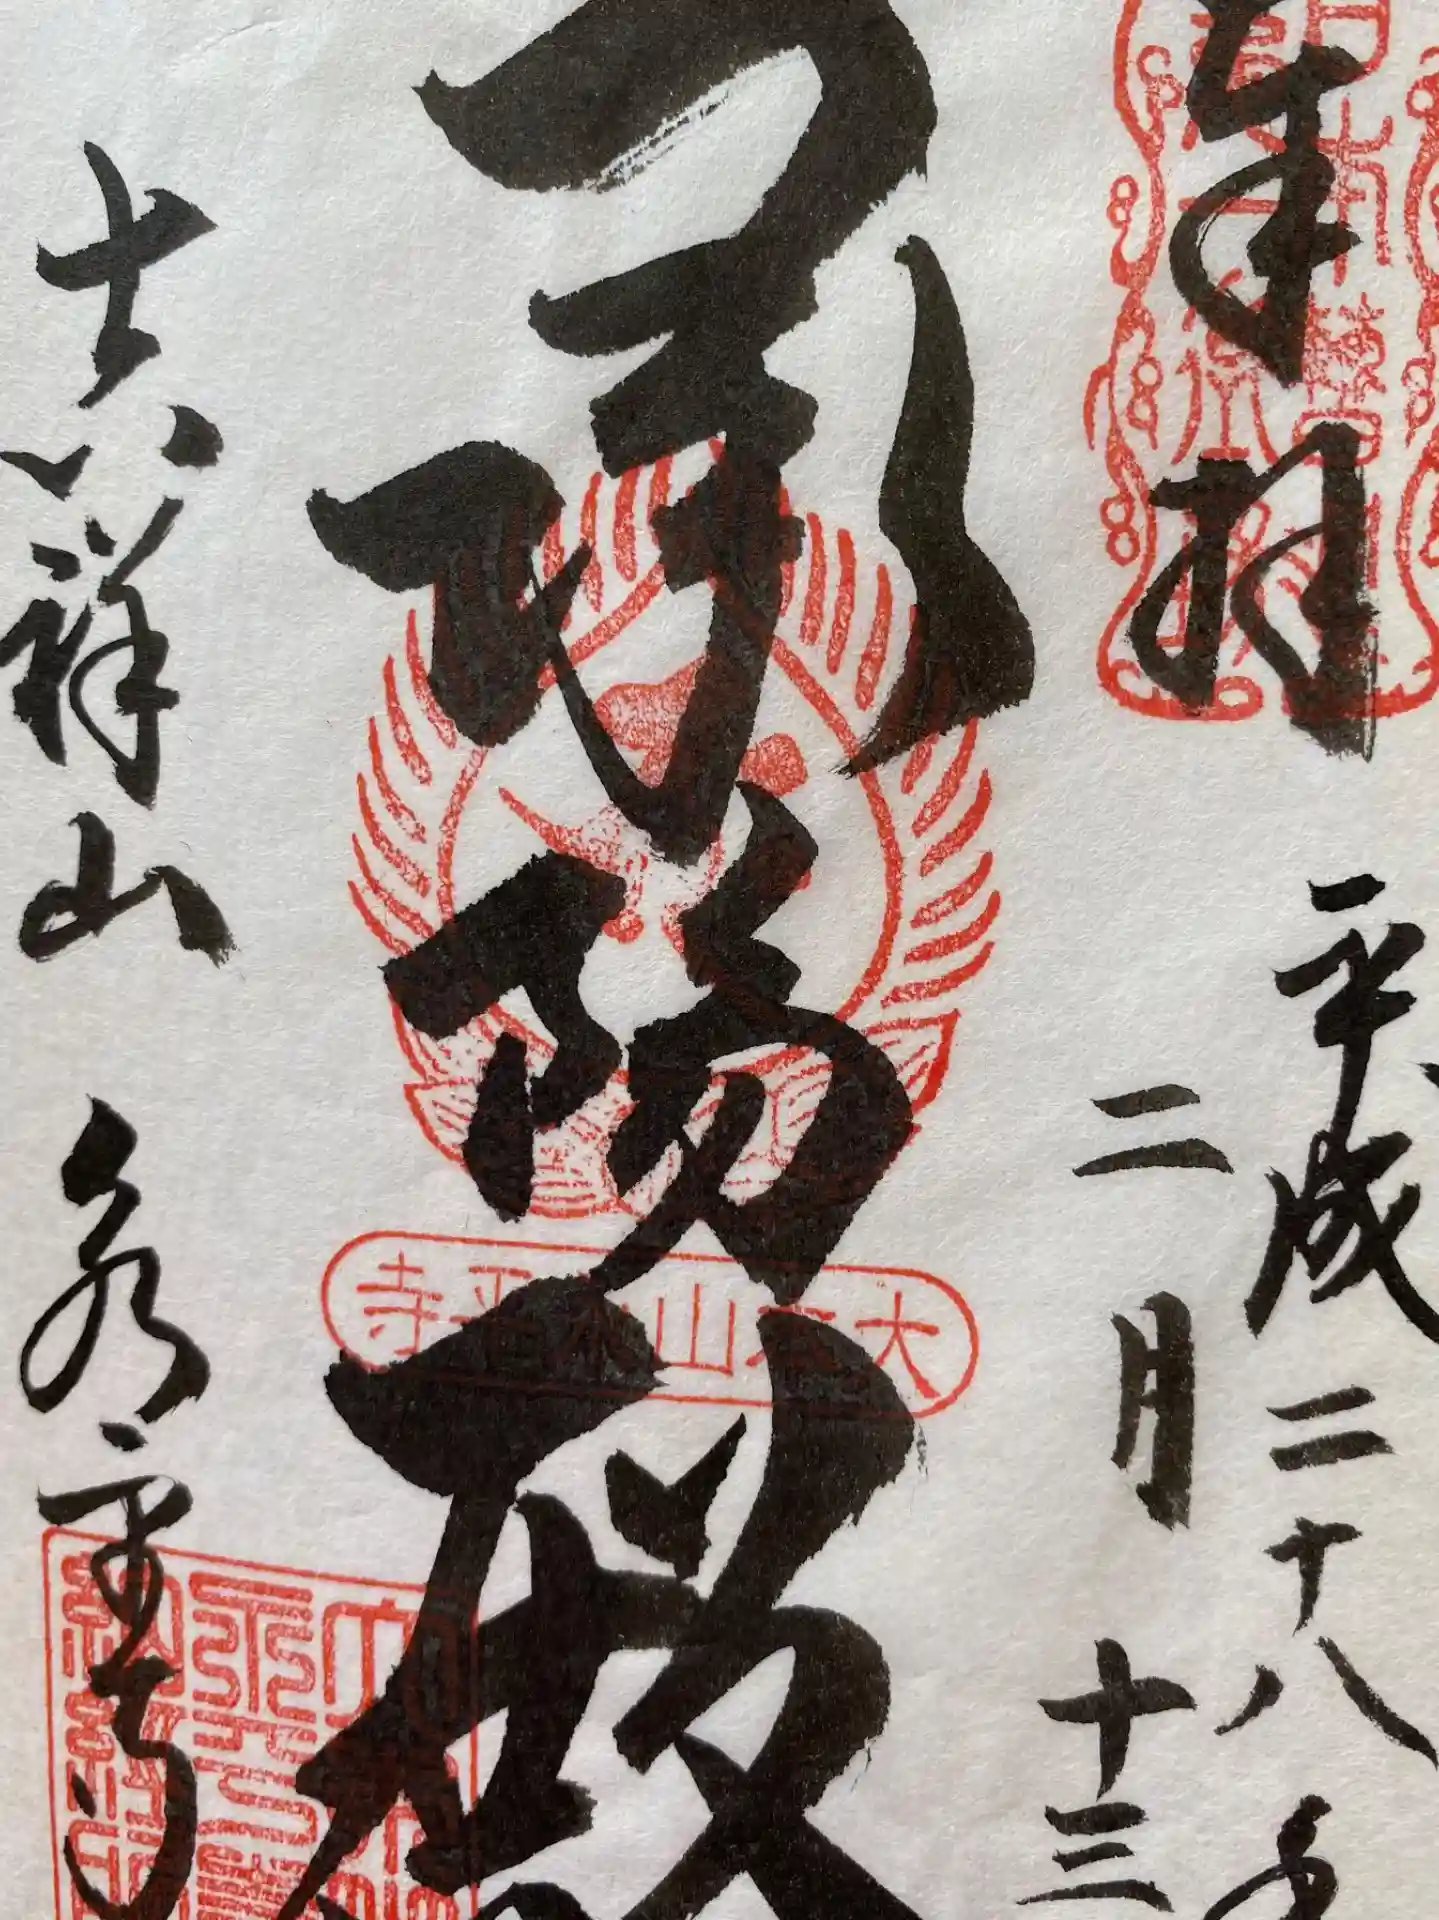 奉拝
平成二十八年
二月十三
承陽殿
大本山永平寺
吉祥山 永平寺